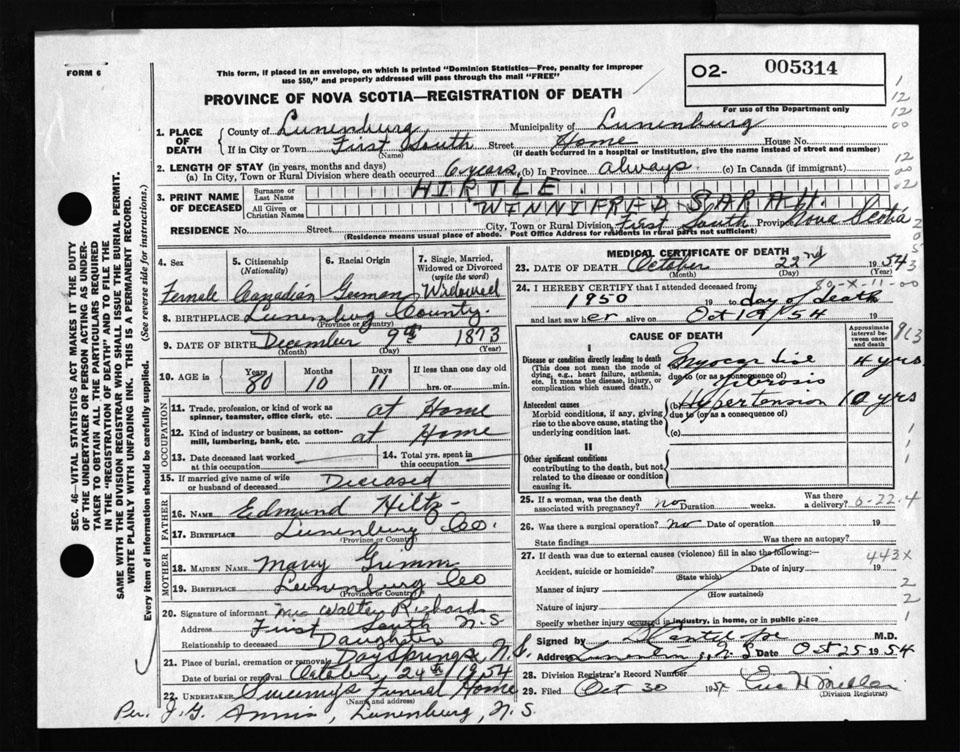 FORM 6
This form, if placed in an envelope, on which is printed "Dominion Statistics—Free, penalty for improper
use $50," and properly addressed will pass through the mail "FREE"
O2- 005314
For use of the Department only
PROVINCE OF NOVA SCOTIA—REGISTRATION OF DEATH
1. PLACE OF DEATH
County of Lunenburg Municipality of Lunenburg
If in City or Town First South Street Home House No.
(Name) (If death occurred in a hospital or institution, give the name instead of street and number)
2. LENGTH OF STAY (in years, months and days)
(a) In City, Town or Rural Division where death occurred 6 years (b) In Province always (c) In Canada (if immigrant)
3. PRINT NAME OF DECEASED
Surname or Last Name HIRTLE
All Given or Christian Names WINNIFRED SARAH
RESIDENCE No. Street City, Town or Rural Division First South Province Nova Scotia
(Residence means usual place of abode. Post Office Address for residents in rural parts not sufficient)
SEC. 46—VITAL STATISTICS ACT MAKES IT THE DUTY
OF THE UNDERTAKER OR PERSON ACTING AS UNDER-
TAKER TO OBTAIN ALL THE PARTICULARS REQUIRED
IN THE "REGISTRATION OF DEATH" AND TO FILE THE
SAME WITH THE DIVISION REGISTRAR WHO SHALL ISSUE THE BURIAL PERMIT.
WRITE PLAINLY WITH UNFADING INK. THIS IS A PERMANENT RECORD.
Every item of information should be carefully supplied. (See reverse side for instructions.)
4. Sex 5. Citizenship (Nationality) 6. Racial Origin 7. Single, Married, Widowed or Divorced (write the word)
Female Canadian German Widowed
8. BIRTHPLACE Lunenburg County
(Province or Country)
9. DATE OF BIRTH December 9th 1873
(Month) (Day) (Year)
10. AGE in Years Months Days If less than one day old
80 10 11 hrs. or min.
OCCUPATION
11. Trade, profession, or kind of work as
spinner, teamster, office clerk, etc. at Home
12. Kind of industry or business, as cotton-
mill, lumbering, bank, etc. at Home
13. Date deceased last worked at this occupation
14. Total yrs. spent in this occupation
15. If married give name of wife
or husband of deceased Deceased
FATHER
16. NAME Edmund Hiltz
17. BIRTHPLACE Lunenburg Co.
(Province or Country)
MOTHER
18. MAIDEN NAME Mary Grimm
19. BIRTHPLACE Lunenburg Co
(Province or Country)
20. Signature of informant Mrs Walter Richards
Address First South N.S
Relationship to deceased Daughter
21. Place of burial, cremation or removal Dayspring N.S.
Date of burial or removal October 24th 1954
22. UNDERTAKER Sweeny's Funeral Home
(Name and address)
Per. J.G. Annis, Lunenburg, N.S.
MEDICAL CERTIFICATE OF DEATH
23. DATE OF DEATH October 22nd 1954
(Month) (Day) (Year)
24. I HEREBY CERTIFY that I attended deceased from 80-X-11-00
1950 19 to day of death
and last saw her alive on Oct 19/54 19
CAUSE OF DEATH
Approximate interval between onset and death
I
Disease or condition directly leading to death
(This does not mean the mode of
dying, e.g., heart failure, asthenia,
etc. It means the disease, injury, or
complication which caused death.)
Myocardial 4 yrs
due to (or as a consequence of)
fibrosis
Antecedent causes
Morbid conditions, if any, giving
rise to the above cause, stating the
underlying condition last.
(b) Hypertension 10 yrs
due to (or as a consequence of)
(c)
II
Other significant conditions
contributing to the death, but not
related to the disease or condition
causing it.
25. If a woman, was the death
associated with pregnancy? no Duration weeks. Was there a delivery? 6-22-4
26. Was there a surgical operation? no Date of operation 19
State findings Was there an autopsy?
27. If death was due to external causes (violence) fill in also the following: 443X
Accident, suicide or homicide? Date of injury 19
(State which)
Manner of injury
(How sustained)
Nature of injury
Specify whether injury occurred in industry, in home, or in public place
Signed by M.D.
Address Lunenburg, N.S Date Oct 25 1954
28. Division Registrar's Record Number
29. Filed Oct 30 1954
(Division Registrar)